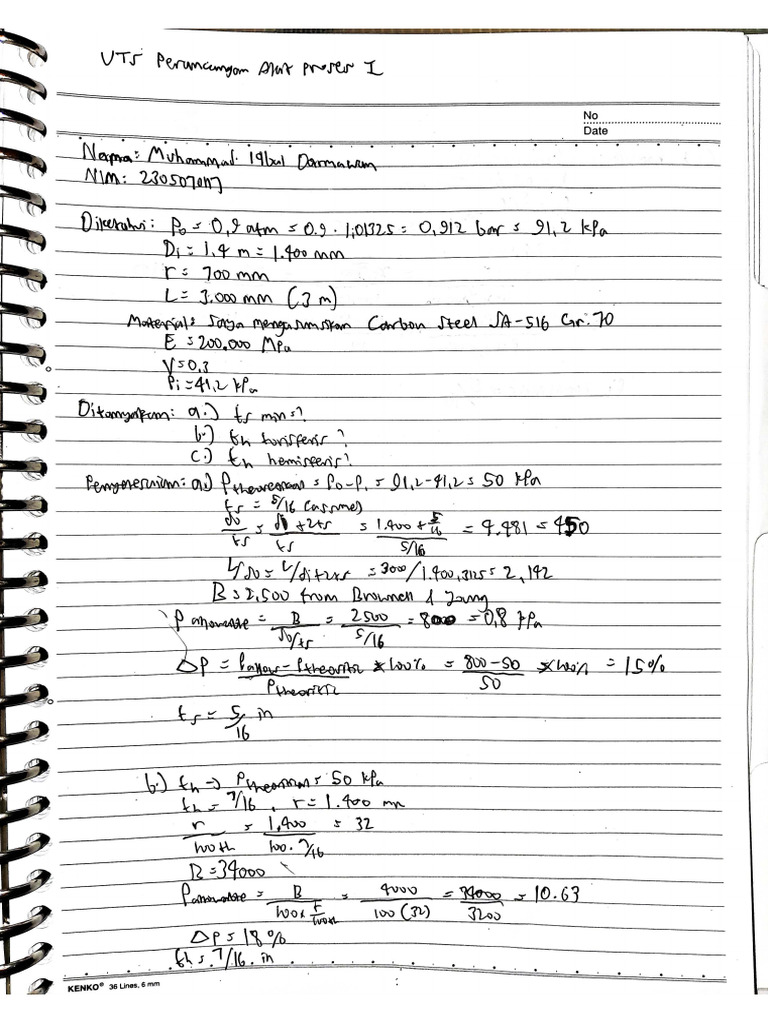 UTS Perancangan Alat Proses I
No
Date
Nama: Muhammad Iqbal Darmawan
NIM: 230507017
Diketahui: Po = 0,9 atm = 0.9 . 1,01325 = 0,912 bar = 91,2 kPa
Di = 1,4 m = 1.400 mm
r = 700 mm
L = 3.000 mm (3 m)
Material: Saya mengasumsikan Carbon Steel SA-516 Gr. 70
E = 200.000 MPa
V = 0.3
Pi = 41,2 kPa
Ditanyakan: a.) ts min = ?
b.) th torisferis ?
c.) th hemisferis ?
Penyelesaian: a.) Ptheoritical = Po - Pi = 91,2 - 41,2 = 50 kPa
ts = 5/16 (assume)
do/ts = di + 2ts/ts = 1.400 + 5/16 / 5/16 = 4.481 = 450
L/do = L/di+2xts = 3000/1.400,3125 = 2,142
B = 2,500 from Brownell & Young
P allowable = B/do/ts = 2500/5/16 = 8000 = 0,8 kPa
ΔP = Pallow - Ptheoritic/Ptheoritic * 100% = 800 - 50/50 * 100% = 15%
ts = 5/16 in
b.) th -> Ptheoritical = 50 kPa
th = 7/16, r = 1.400 mm
r/100th = 1,400/100. 7/16 = 32
B = 34000
Pallowable = B/100x r/100xth = 4000/100 (32) = 34000/3200 = 10.63
ΔP = 18%
th = 7/16. in
KENKO® 36 Lines, 6 mm